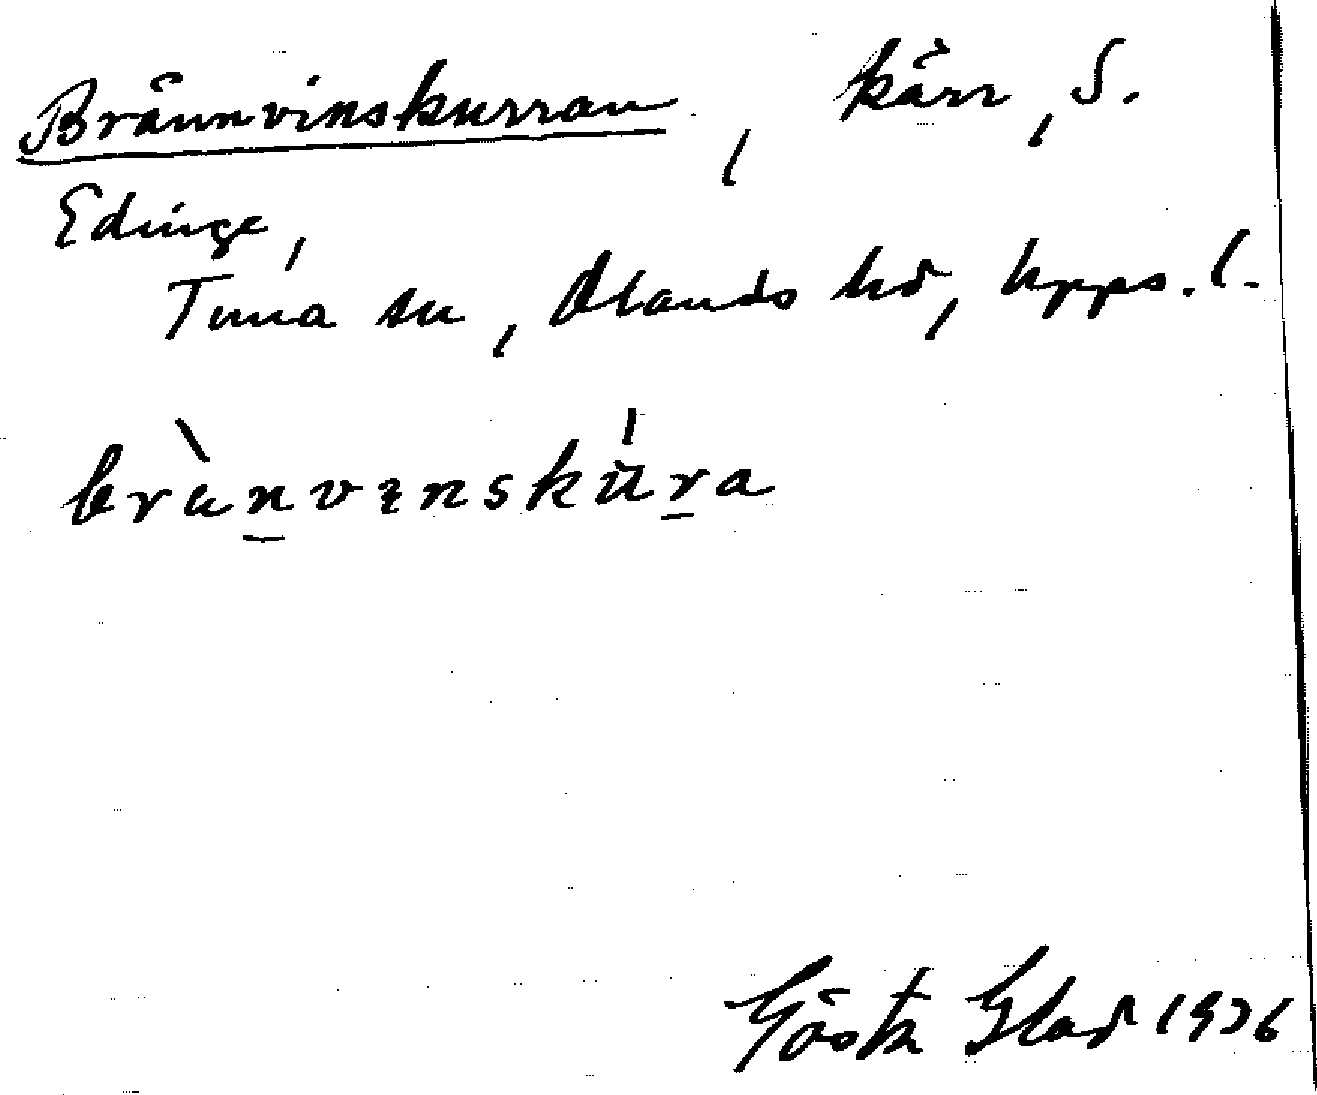 Brännvinskurran, kärr, S.
Edinge,
Tuna sn, Olands hd, Upps. l.
brànvinskúra
Gösta Glad 1936